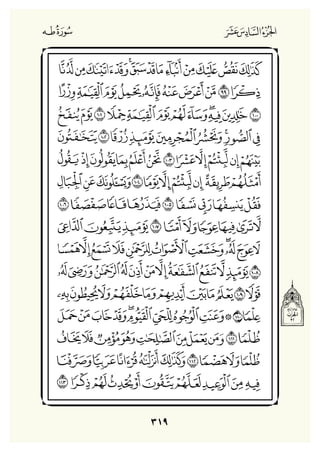 الجُزءُ السَّادِسَ عَشَرَ
سُورَةُ طـه
كَذَٰلِكَ نَقُصُّ عَلَيْكَ مِنْ أَنۢبَآءِ مَا قَدْ سَبَقَۚ وَقَدْ ءَاتَيْنَٰكَ مِن لَّدُنَّا
ذِكْرًا ۝٩٩ مَّنْ أَعْرَضَ عَنْهُ فَإِنَّهُۥ يَحْمِلُ يَوْمَ ٱلْقِيَٰمَةِ وِزْرًا
۝١٠٠ خَٰلِدِينَ فِيهِۖ وَسَآءَ لَهُمْ يَوْمَ ٱلْقِيَٰمَةِ حِمْلًا ۝١٠١ يَوْمَ يُنفَخُ
فِى ٱلصُّورِۚ وَنَحْشُرُ ٱلْمُجْرِمِينَ يَوْمَئِذٍ زُرْقًا ۝١٠٢ يَتَخَٰفَتُونَ
بَيْنَهُمْ إِن لَّبِثْتُمْ إِلَّا عَشْرًا ۝١٠٣ نَّحْنُ أَعْلَمُ بِمَا يَقُولُونَ إِذْ يَقُولُ
أَمْثَلُهُمْ طَرِيقَةً إِن لَّبِثْتُمْ إِلَّا يَوْمًا ۝١٠٤ وَيَسْـَٔلُونَكَ عَنِ ٱلْجِبَالِ
فَقُلْ يَنسِفُهَا رَبِّى نَسْفًا ۝١٠٥ فَيَذَرُهَا قَاعًا صَفْصَفًا ۝١٠٦
لَّا تَرَىٰ فِيهَا عِوَجًا وَلَآ أَمْتًا ۝١٠٧ يَوْمَئِذٍ يَتَّبِعُونَ ٱلدَّاعِىَ
لَا عِوَجَ لَهُۥۖ وَخَشَعَتِ ٱلْأَصْوَاتُ لِلرَّحْمَٰنِ فَلَا تَسْمَعُ إِلَّا هَمْسًا
۝١٠٨ يَوْمَئِذٍ لَّا تَنفَعُ ٱلشَّفَٰعَةُ إِلَّا مَنْ أَذِنَ لَهُ ٱلرَّحْمَٰنُ وَرَضِىَ لَهُۥ
قَوْلًا ۝١٠٩ يَعْلَمُ مَا بَيْنَ أَيْدِيهِمْ وَمَا خَلْفَهُمْ وَلَا يُحِيطُونَ بِهِۦ
عِلْمًا ۝١١٠ ۞ وَعَنَتِ ٱلْوُجُوهُ لِلْحَىِّ ٱلْقَيُّومِۖ وَقَدْ خَابَ مَنْ حَمَلَ
ظُلْمًا ۝١١١ وَمَن يَعْمَلْ مِنَ ٱلصَّٰلِحَٰتِ وَهُوَ مُؤْمِنٌ فَلَا يَخَافُ
ظُلْمًا وَلَا هَضْمًا ۝١١٢ وَكَذَٰلِكَ أَنزَلْنَٰهُ قُرْءَانًا عَرَبِيًّا وَصَرَّفْنَا
فِيهِ مِنَ ٱلْوَعِيدِ لَعَلَّهُمْ يَتَّقُونَ أَوْ يُحْدِثُ لَهُمْ ذِكْرًا ۝١١٣
٣١٩